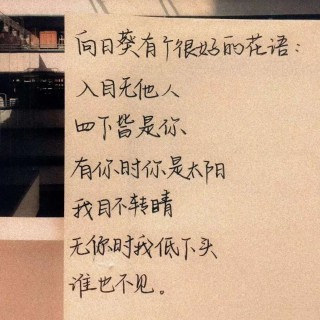 向日葵有个很好的花语：
入目无他人
四下皆是你
有你时你是太阳
我目不转睛
无你时我低下头
谁也不见。